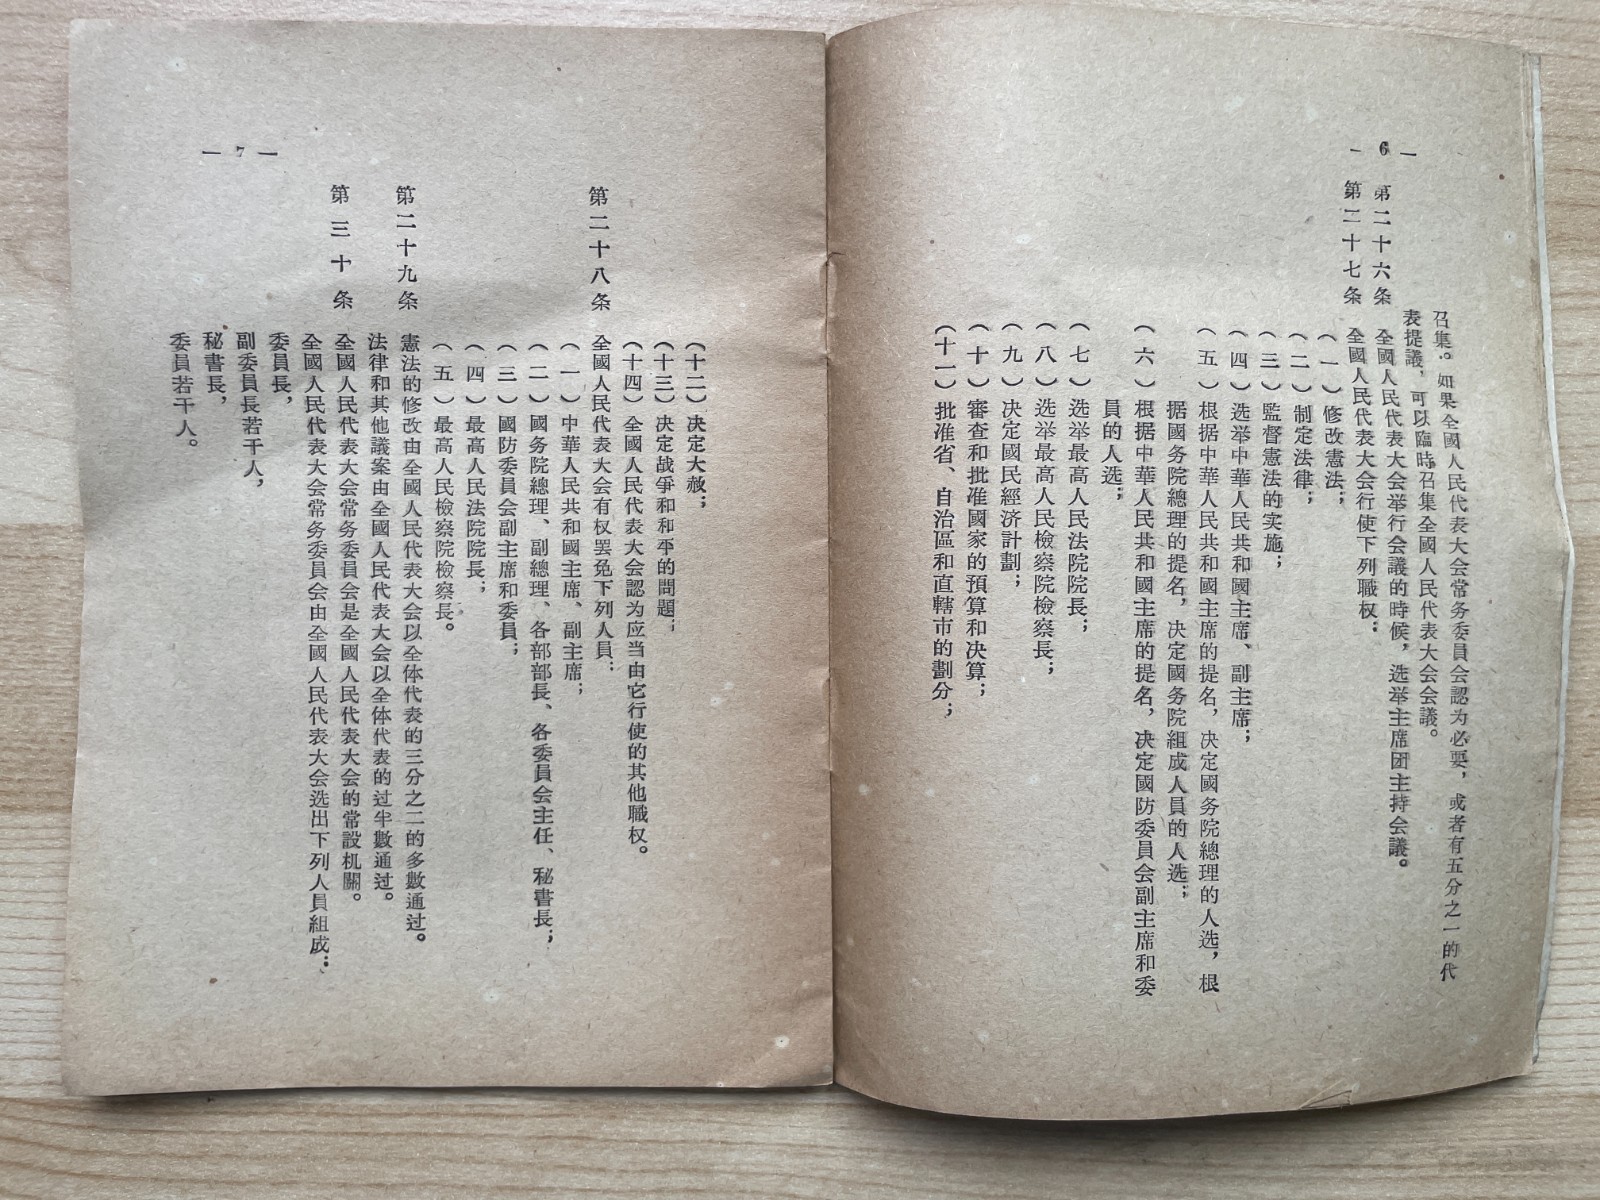 — 6 —
召集。如果全國人民代表大会常务委員会認为必要，或者有五分之一的代
表提議，可以臨時召集全國人民代表大会会議。
第二十六条　全國人民代表大会举行会議的時候，选举主席团主持会議。
第二十七条　全國人民代表大会行使下列職权：
（一）修改憲法；
（二）制定法律；
（三）監督憲法的实施；
（四）选举中華人民共和國主席、副主席；
（五）根据中華人民共和國主席的提名，决定國务院總理的人选，根
据國务院總理的提名，决定國务院組成人員的人选；
（六）根据中華人民共和國主席的提名，决定國防委員会副主席和委
員的人选；
（七）选举最高人民法院院長；
（八）选举最高人民檢察院檢察長；
（九）决定國民經济計劃；
（十）審查和批准國家的預算和决算；
（十一）批准省、自治區和直轄市的劃分；
（十二）决定大赦；
（十三）决定战爭和和平的問題；
（十四）全國人民代表大会認为应当由它行使的其他職权。
第二十八条　全國人民代表大会有权罢免下列人員：
（一）中華人民共和國主席、副主席；
（二）國务院總理、副總理、各部部長、各委員会主任、秘書長；
（三）國防委員会副主席和委員；
（四）最高人民法院院長；
（五）最高人民檢察院檢察長。
第二十九条　憲法的修改由全國人民代表大会以全体代表的三分之二的多數通过。
法律和其他議案由全國人民代表大会以全体代表的过半數通过。
第三十条　全國人民代表大会常务委員会是全國人民代表大会的常設机關。
全國人民代表大会常务委員会由全國人民代表大会选出下列人員組成：
委員長，
副委員長若干人，
秘書長，
委員若干人。
— 7 —